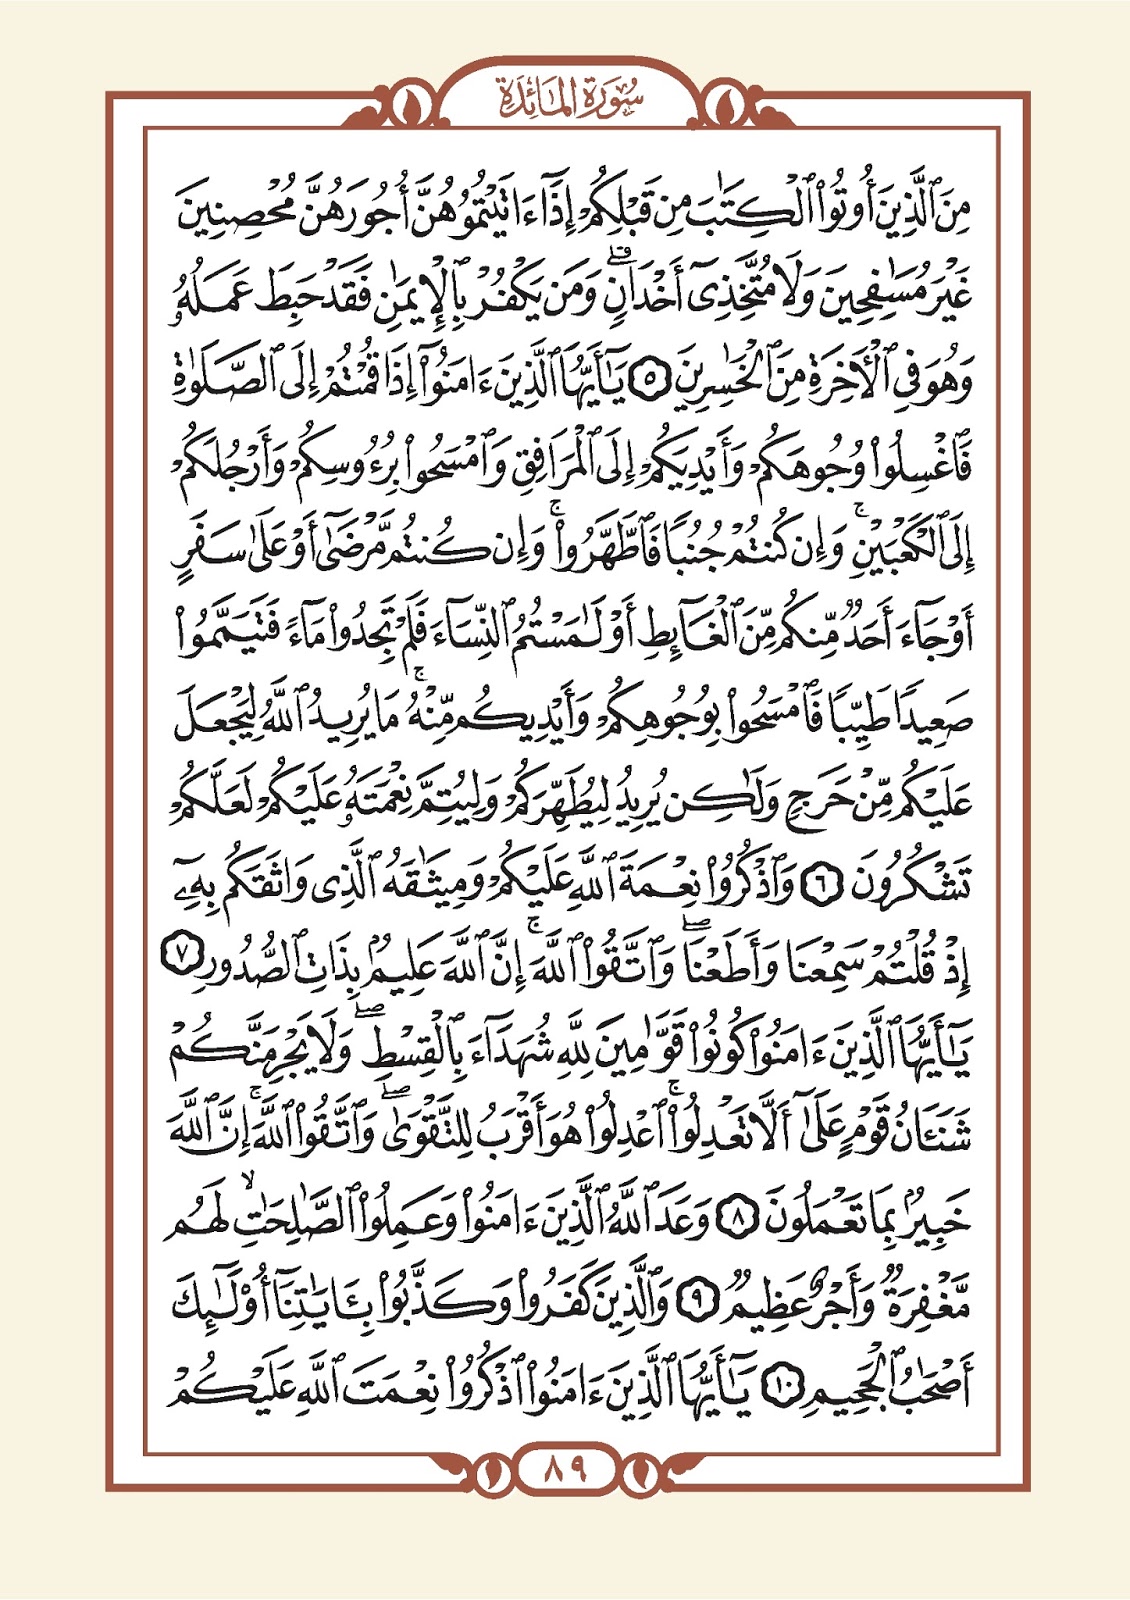 سُورَةُ المَائِدَةِ
مِنَ ٱلَّذِينَ أُوتُوا۟ ٱلْكِتَٰبَ مِن قَبْلِكُمْ إِذَآ ءَاتَيْتُمُوهُنَّ أُجُورَهُنَّ مُحْصِنِينَ
غَيْرَ مُسَٰفِحِينَ وَلَا مُتَّخِذِىٓ أَخْدَانٍۗ وَمَن يَكْفُرْ بِٱلْإِيمَٰنِ فَقَدْ حَبِطَ عَمَلُهُۥ
وَهُوَ فِى ٱلْأَخِرَةِ مِنَ ٱلْخَٰسِرِينَ ٥ يَٰٓأَيُّهَا ٱلَّذِينَ ءَامَنُوٓا۟ إِذَا قُمْتُمْ إِلَى ٱلصَّلَوٰةِ
فَٱغْسِلُوا۟ وُجُوهَكُمْ وَأَيْدِيَكُمْ إِلَى ٱلْمَرَافِقِ وَٱمْسَحُوا۟ بِرُءُوسِكُمْ وَأَرْجُلَكُمْ
إِلَى ٱلْكَعْبَيْنِۚ وَإِن كُنتُمْ جُنُبًا فَٱطَّهَّرُوا۟ۚ وَإِن كُنتُم مَّرْضَىٰٓ أَوْ عَلَىٰ سَفَرٍ
أَوْ جَآءَ أَحَدٌ مِّنكُم مِّنَ ٱلْغَآئِطِ أَوْ لَٰمَسْتُمُ ٱلنِّسَآءَ فَلَمْ تَجِدُوا۟ مَآءً فَتَيَمَّمُوا۟
صَعِيدًا طَيِّبًا فَٱمْسَحُوا۟ بِوُجُوهِكُمْ وَأَيْدِيكُم مِّنْهُۚ مَا يُرِيدُ ٱللَّهُ لِيَجْعَلَ
عَلَيْكُم مِّنْ حَرَجٍ وَلَٰكِن يُرِيدُ لِيُطَهِّرَكُمْ وَلِيُتِمَّ نِعْمَتَهُۥ عَلَيْكُمْ لَعَلَّكُمْ
تَشْكُرُونَ ٦ وَٱذْكُرُوا۟ نِعْمَةَ ٱللَّهِ عَلَيْكُمْ وَمِيثَٰقَهُ ٱلَّذِى وَاثَقَكُم بِهِۦٓ
إِذْ قُلْتُمْ سَمِعْنَا وَأَطَعْنَاۖ وَٱتَّقُوا۟ ٱللَّهَۚ إِنَّ ٱللَّهَ عَلِيمٌۢ بِذَاتِ ٱلصُّدُورِ ٧
يَٰٓأَيُّهَا ٱلَّذِينَ ءَامَنُوا۟ كُونُوا۟ قَوَّٰمِينَ لِلَّهِ شُهَدَآءَ بِٱلْقِسْطِۖ وَلَا يَجْرِمَنَّكُمْ
شَنَـَٔانُ قَوْمٍ عَلَىٰٓ أَلَّا تَعْدِلُوا۟ۚ ٱعْدِلُوا۟ هُوَ أَقْرَبُ لِلتَّقْوَىٰۖ وَٱتَّقُوا۟ ٱللَّهَۚ إِنَّ ٱللَّهَ
خَبِيرٌۢ بِمَا تَعْمَلُونَ ٨ وَعَدَ ٱللَّهُ ٱلَّذِينَ ءَامَنُوا۟ وَعَمِلُوا۟ ٱلصَّٰلِحَٰتِۙ لَهُم
مَّغْفِرَةٌ وَأَجْرٌ عَظِيمٌ ٩ وَٱلَّذِينَ كَفَرُوا۟ وَكَذَّبُوا۟ بِـَٔايَٰتِنَآ أُو۟لَٰٓئِكَ
أَصْحَٰبُ ٱلْجَحِيمِ ١٠ يَٰٓأَيُّهَا ٱلَّذِينَ ءَامَنُوا۟ ٱذْكُرُوا۟ نِعْمَتَ ٱللَّهِ عَلَيْكُمْ
٨٩